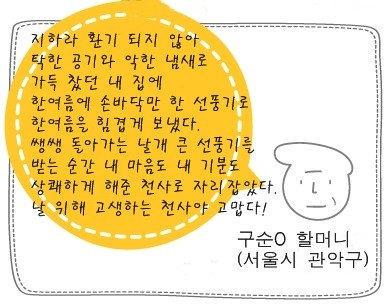 지하라 환기 되지 않아
탁한 공기와 악한 냄새로
가득 찼던 내 집에
한여름에 손바닥만 한 선풍기로
한여름을 힘겹게 보냈다.
쌩쌩 돌아가는 날개 큰 선풍기를
받는 순간 내 마음도 내 기분도
상쾌하게 해준 천사로 자리잡았다.
날 위해 고생하는 천사야 고맙다!
구순O 할머니
(서울시 관악구)